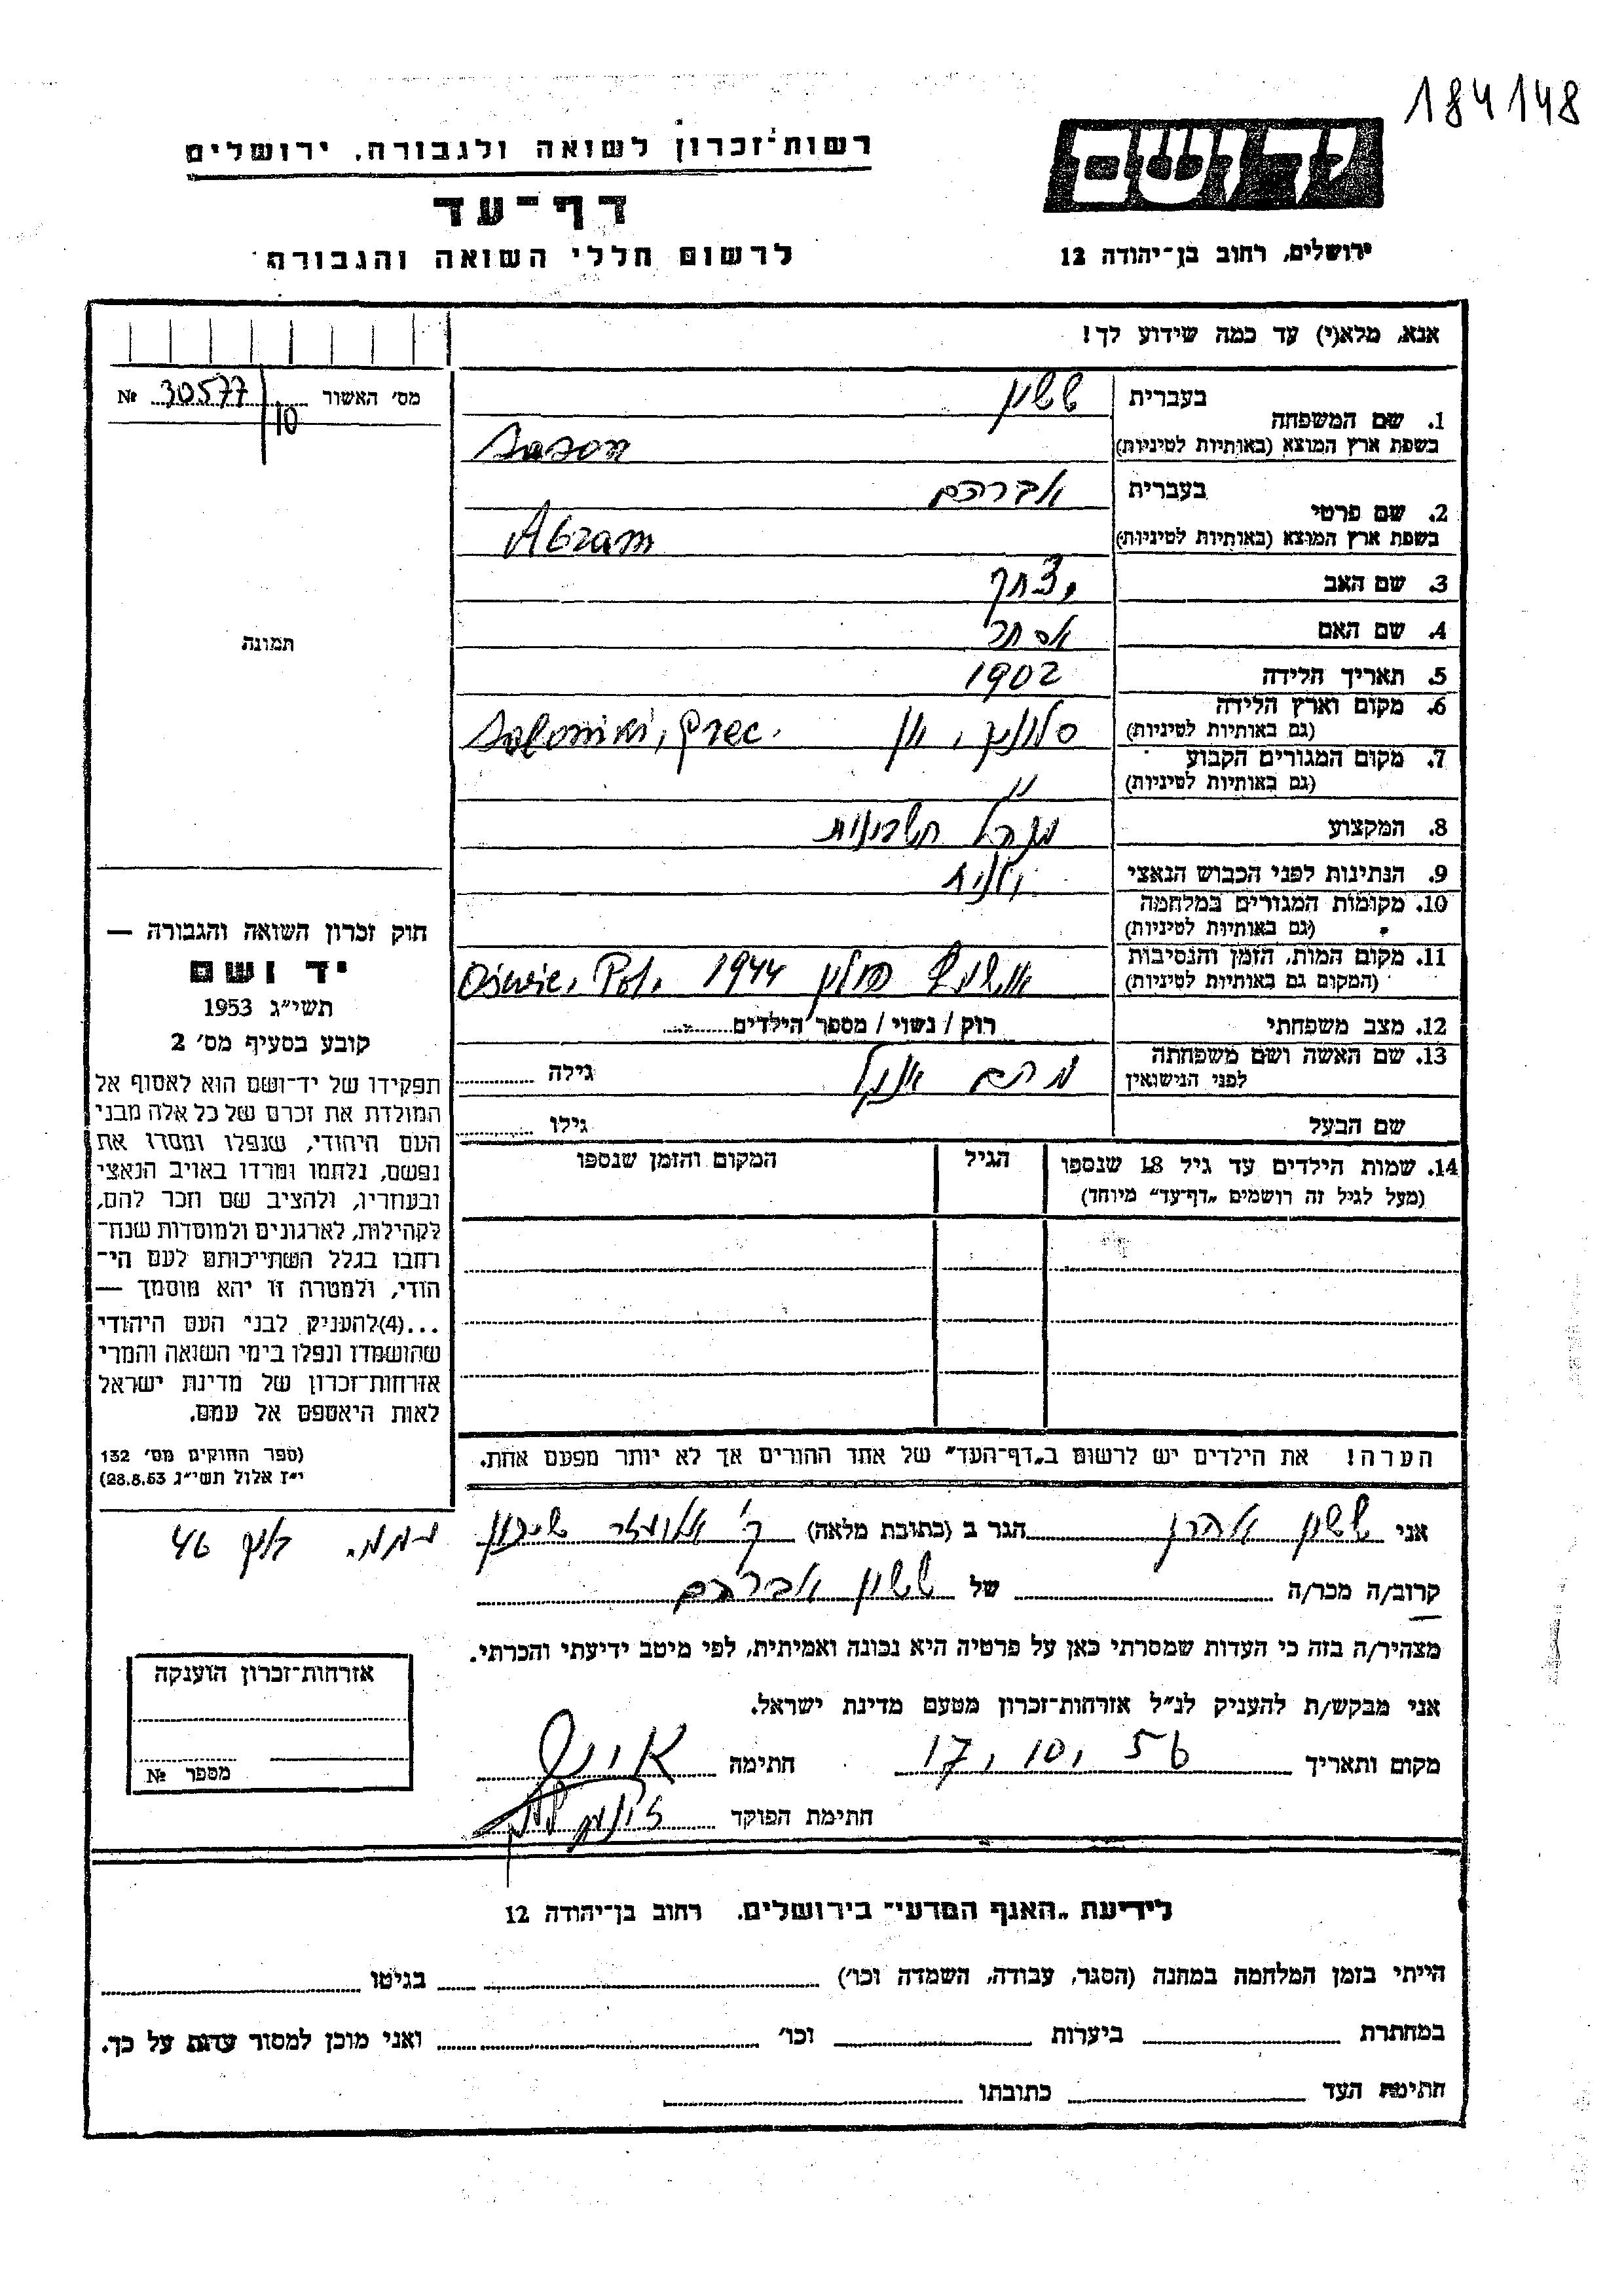 184148
רשות־זכרון לשואה ולגבורה, ירושלים
דף־עד
לרשום חללי השואה והגבורה
יד ושם
ירושלים, רחוב בן־יהודה 12
אנא, מלא(י) עד כמה שידוע לך!
מס׳ האשור № 30577/10
תמונה
1. שם המשפחה
בעברית ששון
בשפת ארץ המוצא (באותיות לטיניות) Sason
2. שם פרטי
בעברית אברהם
בשפת ארץ המוצא (באותיות לטיניות) Abram
3. שם האב יצחק
4. שם האם אסתר
5. תאריך הלידה 1902
6. מקום וארץ הלידה
(גם באותיות לטיניות) סלוניקי, יון Saloniki, Grec.
7. מקום המגורים הקבוע
(גם באותיות לטיניות) "
8. המקצוע מנהל חשבונות
9. הנתינות לפני הכבוש הנאצי יונית
10. מקומות המגורים במלחמה
(גם באותיות לטיניות)
11. מקום המות, הזמן והנסיבות
(המקום גם באותיות לטיניות) פולין 1944 Oświe, Pol.
12. מצב משפחתי רוק / נשוי / מספר הילדים
13. שם האשה ושם משפחתה
לפני הנישואין מרים אנג'ל גילה
שם הבעל גילו
14. שמות הילדים עד גיל 18 שנספו הגיל המקום והזמן שנספו
(מעל לגיל זה רושמים „דף־עד״ מיוחד)
הערה! את הילדים יש לרשום ב„דף־העד״ של אחד ההורים אך לא יותר מפעם אחת.
חוק זכרון השואה והגבורה —
יד ושם
תשי״ג 1953
קובע בסעיף מס׳ 2
תפקידו של יד־ושם הוא לאסוף אל
המולדת את זכרם של כל אלה מבני
העם היהודי, שנפלו ומסרו את
נפשם, נלחמו ומרדו באויב הנאצי
ובעוזריו, ולהציב שם וזכר להם,
לקהילות, לארגונים ולמוסדות שנח־
רחבו בגלל השתייכותם לעם הי־
הודי, ולמטרה זו יהא מוסמך —
...(4)להעניק לבני העם היהודי
שהושמדו ונפלו בימי השואה והמרי
אזרחות־זכרון של מדינת ישראל
לאות היאספם אל עמם.
(ספר החוקים מס׳ 132
י״ז אלול תשי״ג 28.8.53)
אני ששון אהרן הגר ב (כתובת מלאה) ק' אליעזר שיכון 46
קרוב/ה מכר/ה של ששון אברהם
מצהיר/ה בזה כי העדות שמסרתי כאן על פרטיה היא נכונה ואמיתית, לפי מיטב ידיעתי והכרתי.
אני מבקש/ת להעניק לנ״ל אזרחות־זכרון מטעם מדינת ישראל.
מקום ותאריך 17, 10, 56 חתימה
חתימת הפוקד
אזרחות־זכרון הוענקה
מספר №
לידיעת „האגף המדעי״ בירושלים. רחוב בן־יהודה 12
הייתי בזמן המלחמה במחנה (הסגר, עבודה, השמדה וכו׳) בגיטו
במחתרת ביערות וכו׳ ואני מוכן למסור עדות על כך.
חתימת העד כתובתו